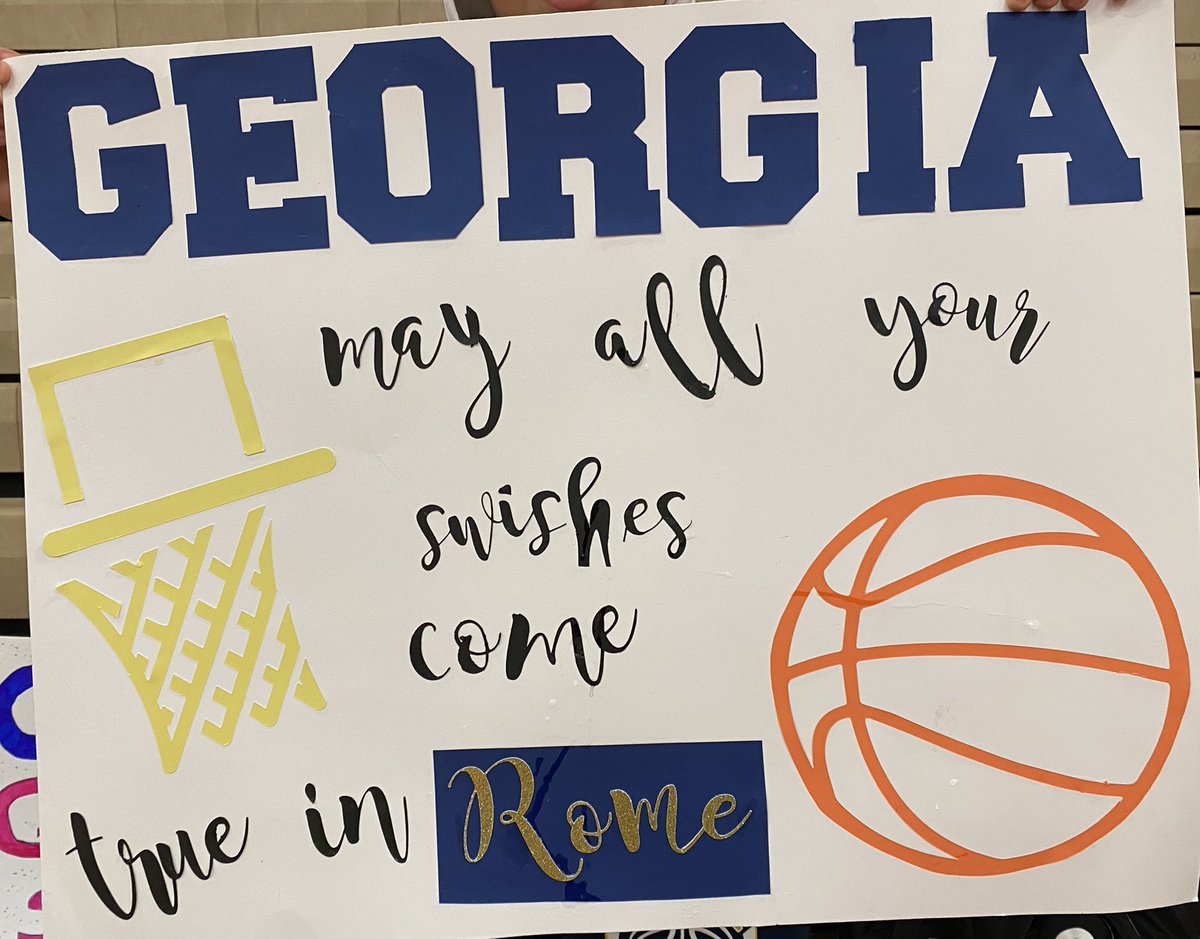 GEORGIA
may all your
swishes
come
true in Rome